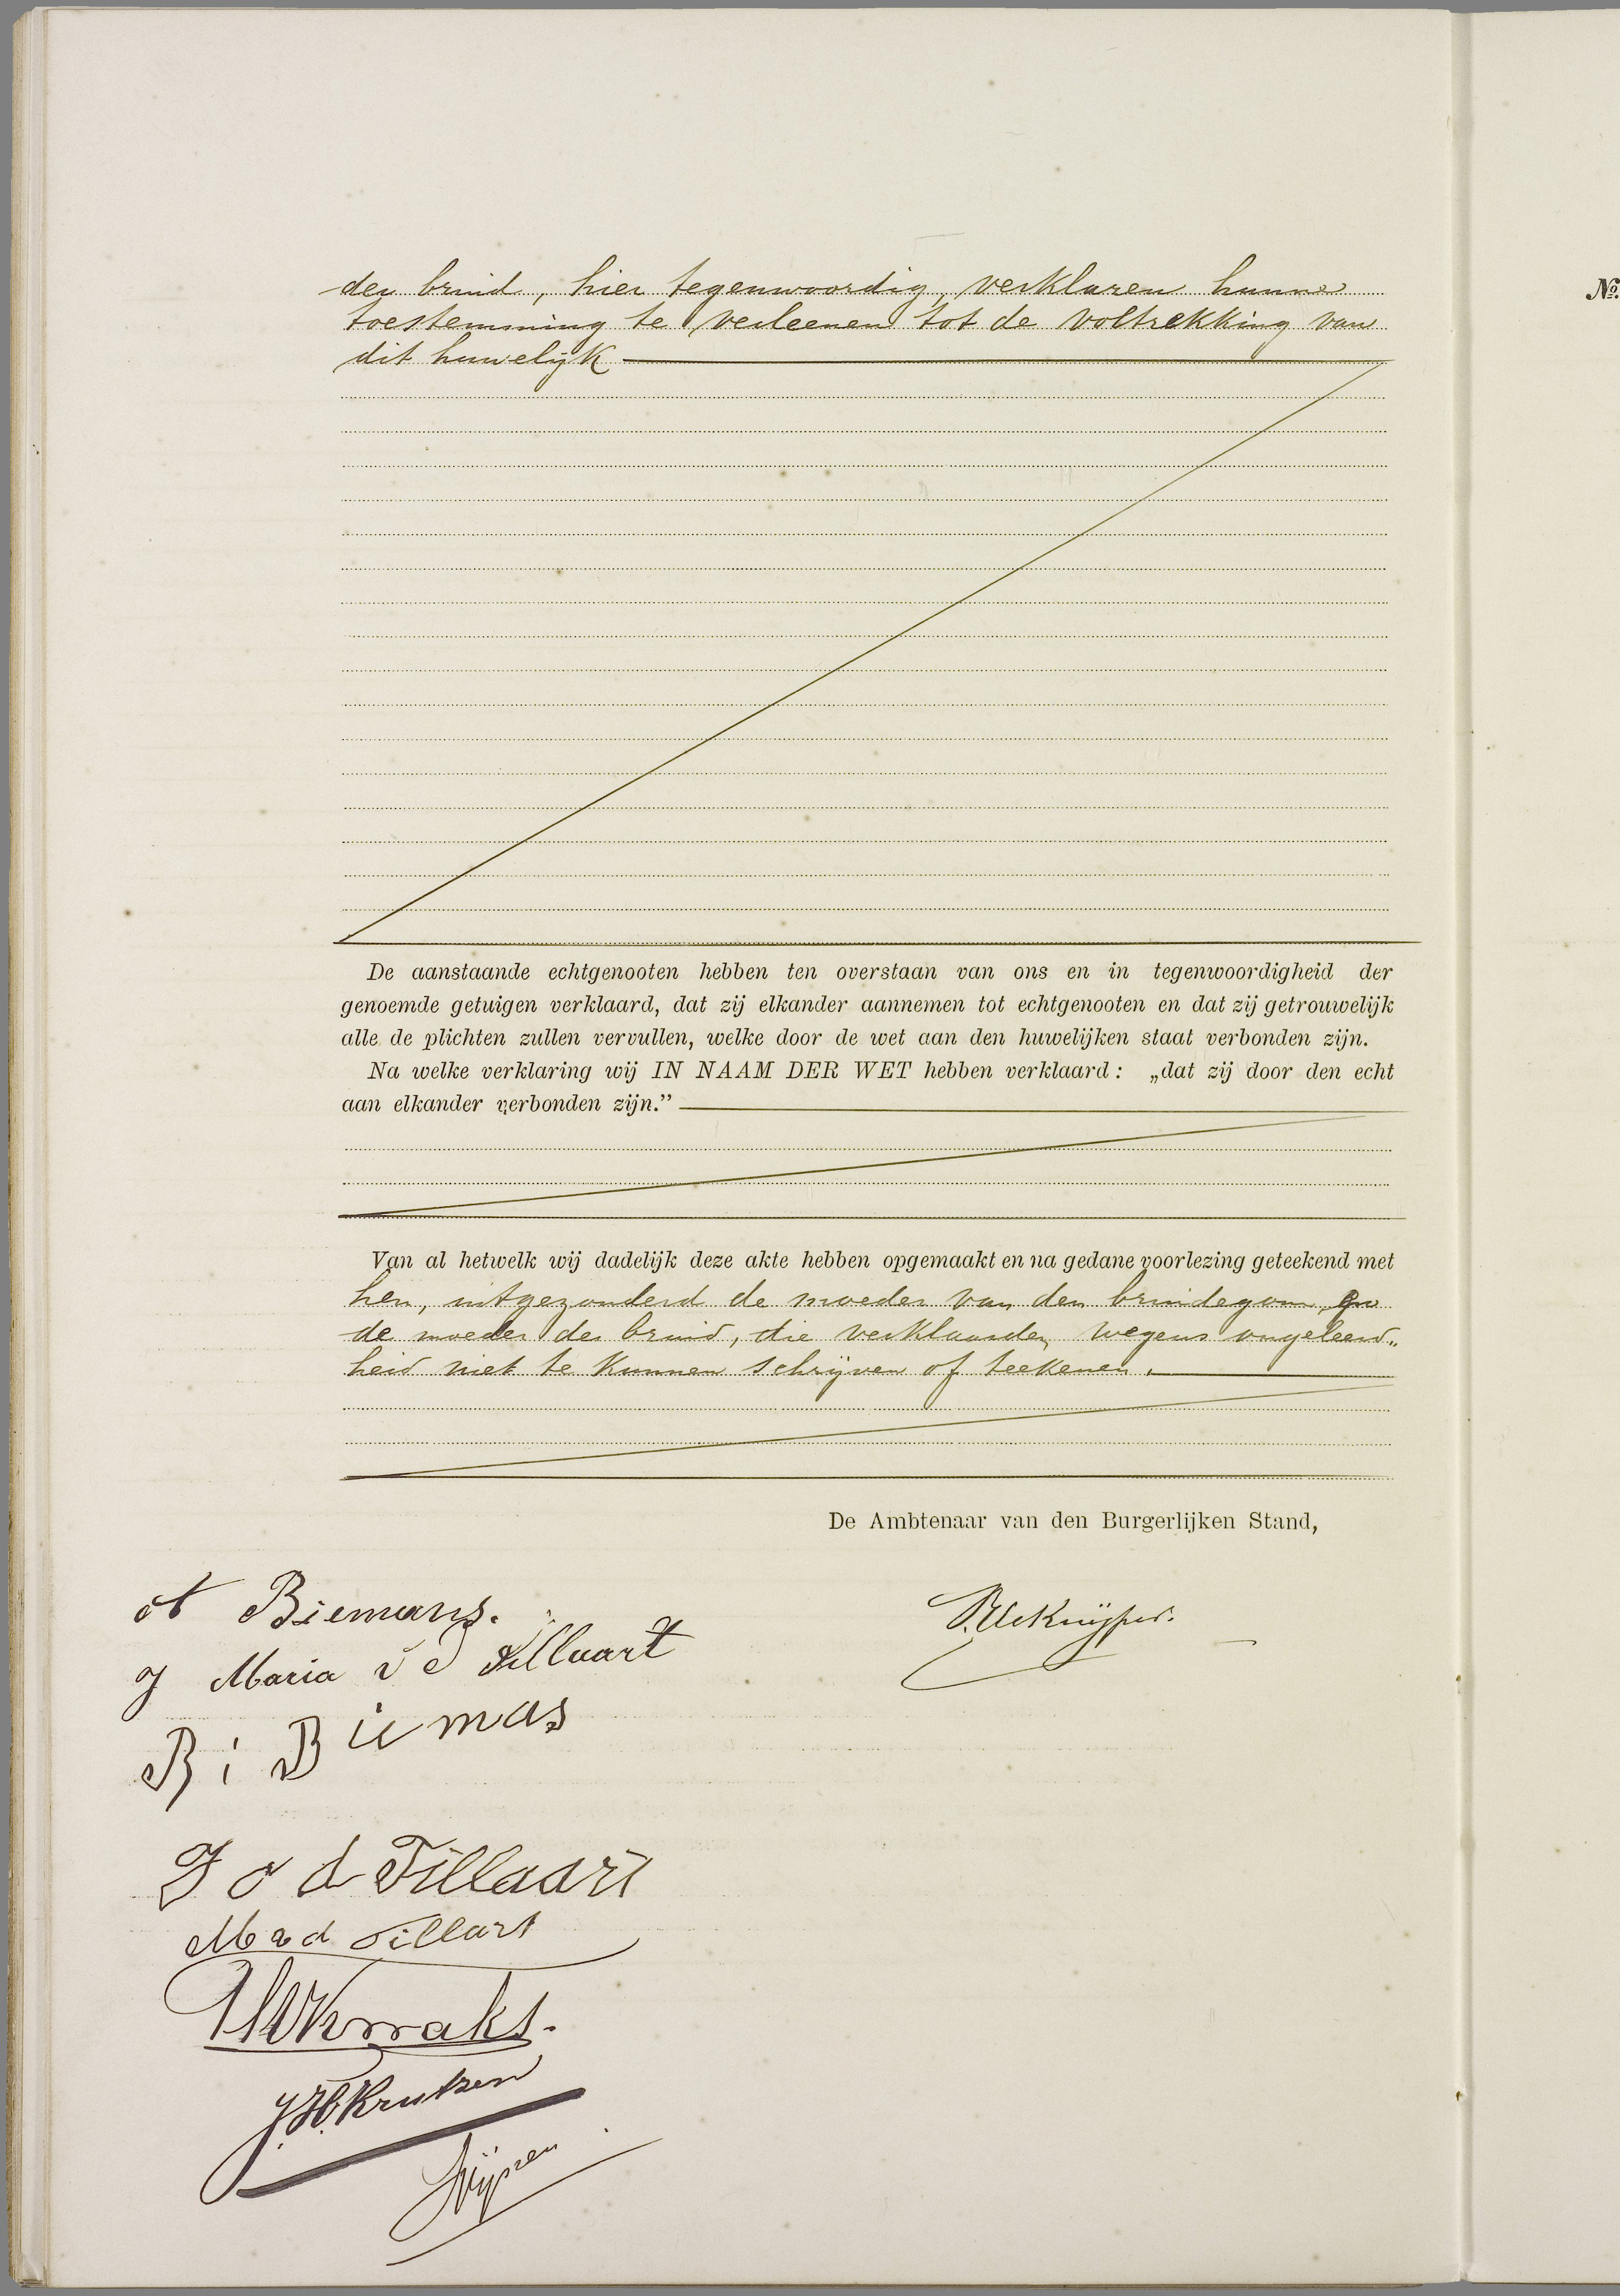 der bruid, hier tegenwoordig, verklaren hunne
toestemming te verleenen tot de voltrekking van
dit huwelijk
De aanstaande echtgenooten hebben ten overstaan van ons en in tegenwoordigheid der
genoemde getuigen verklaard, dat zij elkander aannemen tot echtgenooten en dat zij getrouwelijk
alle de plichten zullen vervullen, welke door de wet aan den huwelijken staat verbonden zijn.
Na welke verklaring wij IN NAAM DER WET hebben verklaard: „dat zij door den echt
aan elkander verbonden zijn.”
Van al hetwelk wij dadelijk deze akte hebben opgemaakt en na gedane voorlezing geteekend met
hen, uitgezonderd de moeder van den bruidegom, en
de moeder der bruid, die verklaarden, wegens ongeleerd„
heid niet te kunnen schrijven of teekenen.
De Ambtenaar van den Burgerlijken Stand,
A Biemans.
J Maria v d Tillaart
B i Biemas
J v d Tillaart
M v d Tillart
J.H. Krutzen
No.